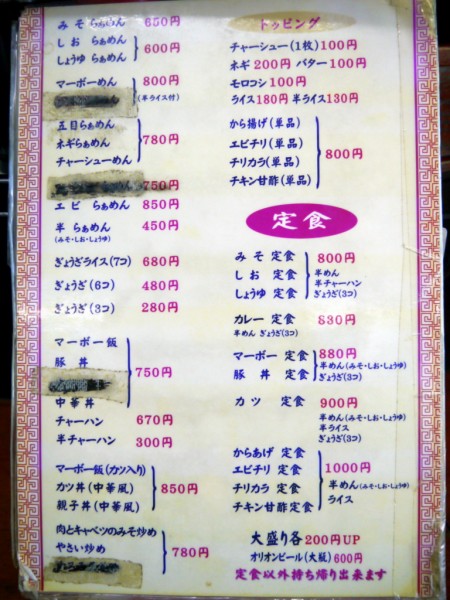 みそ らぁめん 650円
しお らぁめん
しょうゆ らぁめん
600円
マーボーめん 800円
(半ライス付)
五目らぁめん
ネギらぁめん
チャーシューめん
780円
750円
エビ らぁめん 850円
半 らぁめん 450円
(みそ・しお・しょうゆ)
ぎょうざライス(7コ) 680円
ぎょうざ(6コ) 480円
ぎょうざ(3コ) 280円
マーボー飯
豚丼
中華丼
750円
チャーハン 670円
半チャーハン 300円
マーボー飯(カツ入り)
カツ丼(中華風)
親子丼(中華風)
850円
肉とキャベツのみそ炒め
やさい炒め
780円
トッピング
チャーシュー(1枚)100円
ネギ 200円 バター 100円
モロコシ 100円
ライス 180円 半ライス 130円
から揚げ(単品)
エビチリ(単品)
チリカラ(単品)
チキン甘酢(単品)
800円
定食
みそ 定食
しお 定食
しょうゆ 定食
800円
半めん
半チャーハン
ぎょうざ(3コ)
カレー 定食 830円
半めん ぎょうざ(3コ)
マーボー 定食
豚丼 定食
880円
半めん(みそ・しお・しょうゆ)
ぎょうざ(3コ)
カツ 定食 900円
半めん(みそ・しお・しょうゆ)
半ライス
ぎょうざ(3コ)
からあげ 定食
エビチリ 定食
チリカラ 定食
チキン甘酢 定食
1000円
半めん(みそ・しお・しょうゆ)
ライス
大盛り各 200円UP
オリオンビール(大瓶)600円
定食以外持ち帰り出来ます